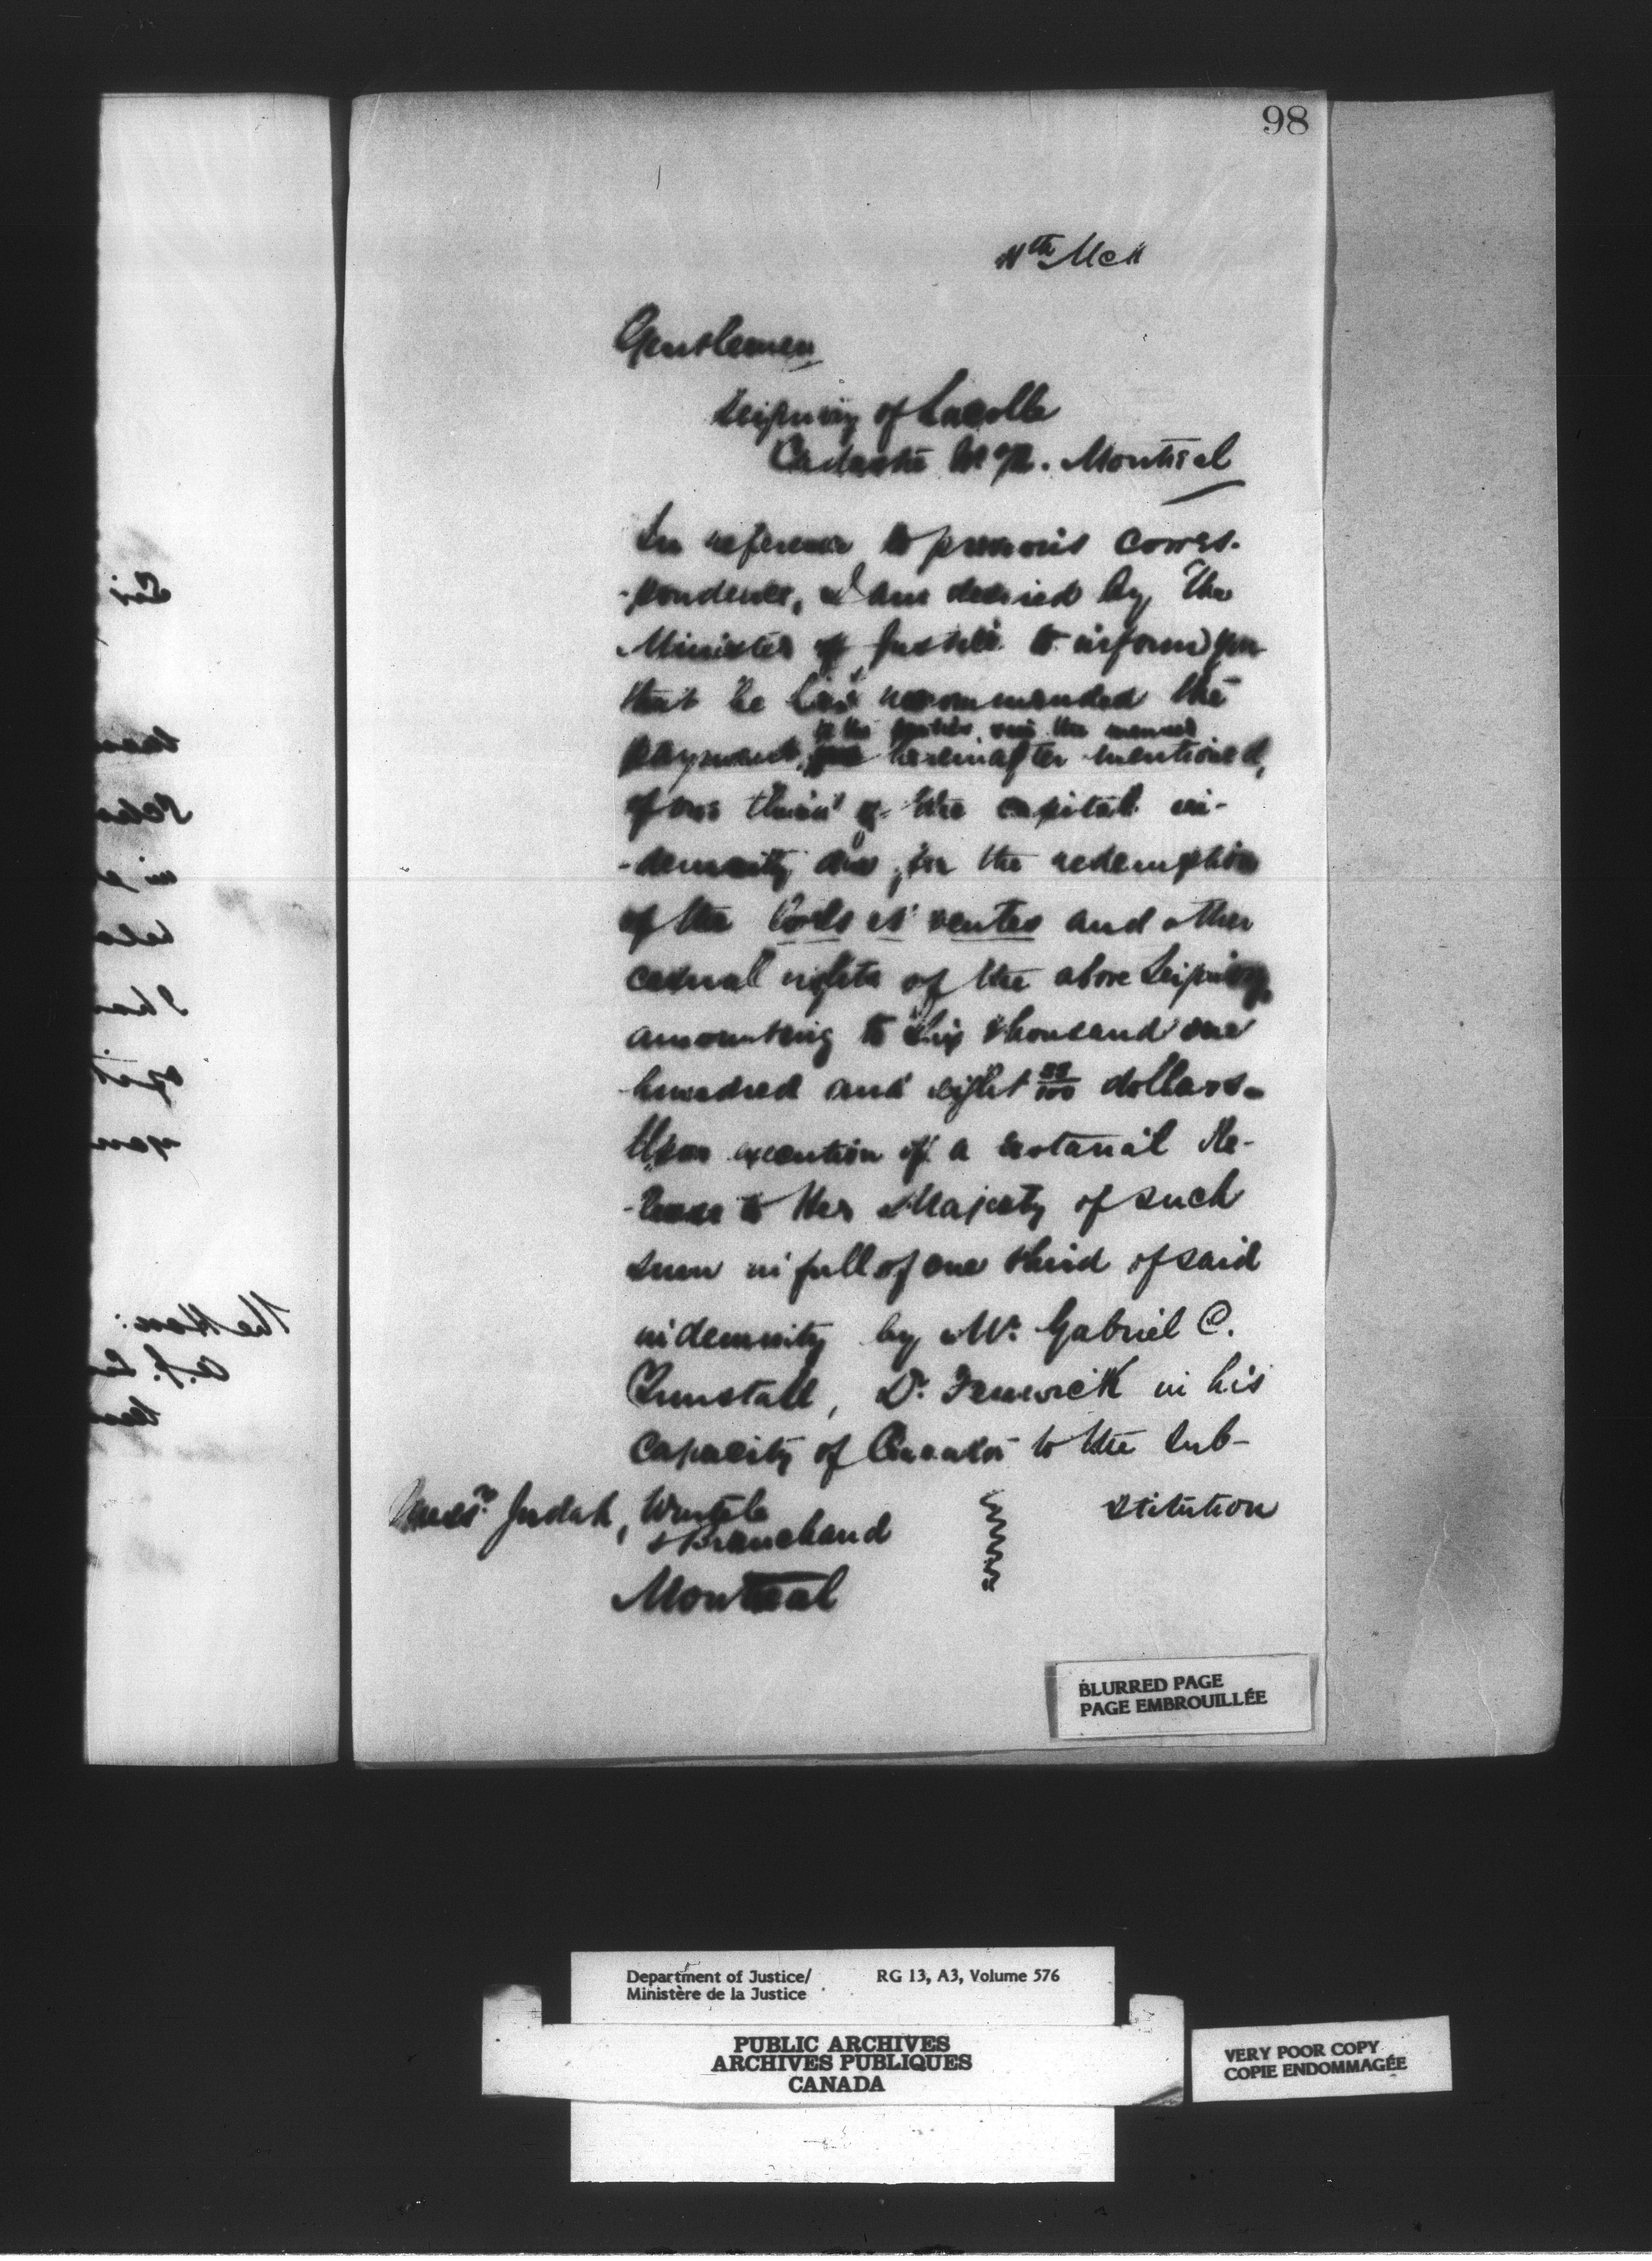 98
11th Mch
Gentlemen
Seigniory of Lacolle
Cadastre No. Montreal
In reference to previous corres-
-pondence, I am desired by the
Minister of Justice to inform you
that he has recommended the
to the parties, in the manner
payment, hereinafter mentioned,
of one third of the capital in-
-demnity due for the redemption
of the lods et ventes and other
casual rights of the above Seigniory
amounting to six thousand one
hundred and eight /100 dollars.
Upon execution of a notarial Re-
-lease to Her Majesty of such
sum in full of one third of said
indemnity by Mr. Gabriel C.
Tunstall, Dr. Fenwick in his
capacity of Curator to the sub-
stitution
Messrs. Judah, Wurtele
& Branchaud
Montreal
BLURRED PAGE
PAGE EMBROUILLÉE
Sir
The Hon:
Department of Justice/
Ministère de la Justice
RG 13, A3, Volume 576
PUBLIC ARCHIVES
ARCHIVES PUBLIQUES
CANADA
VERY POOR COPY
COPIE ENDOMMAGÉE